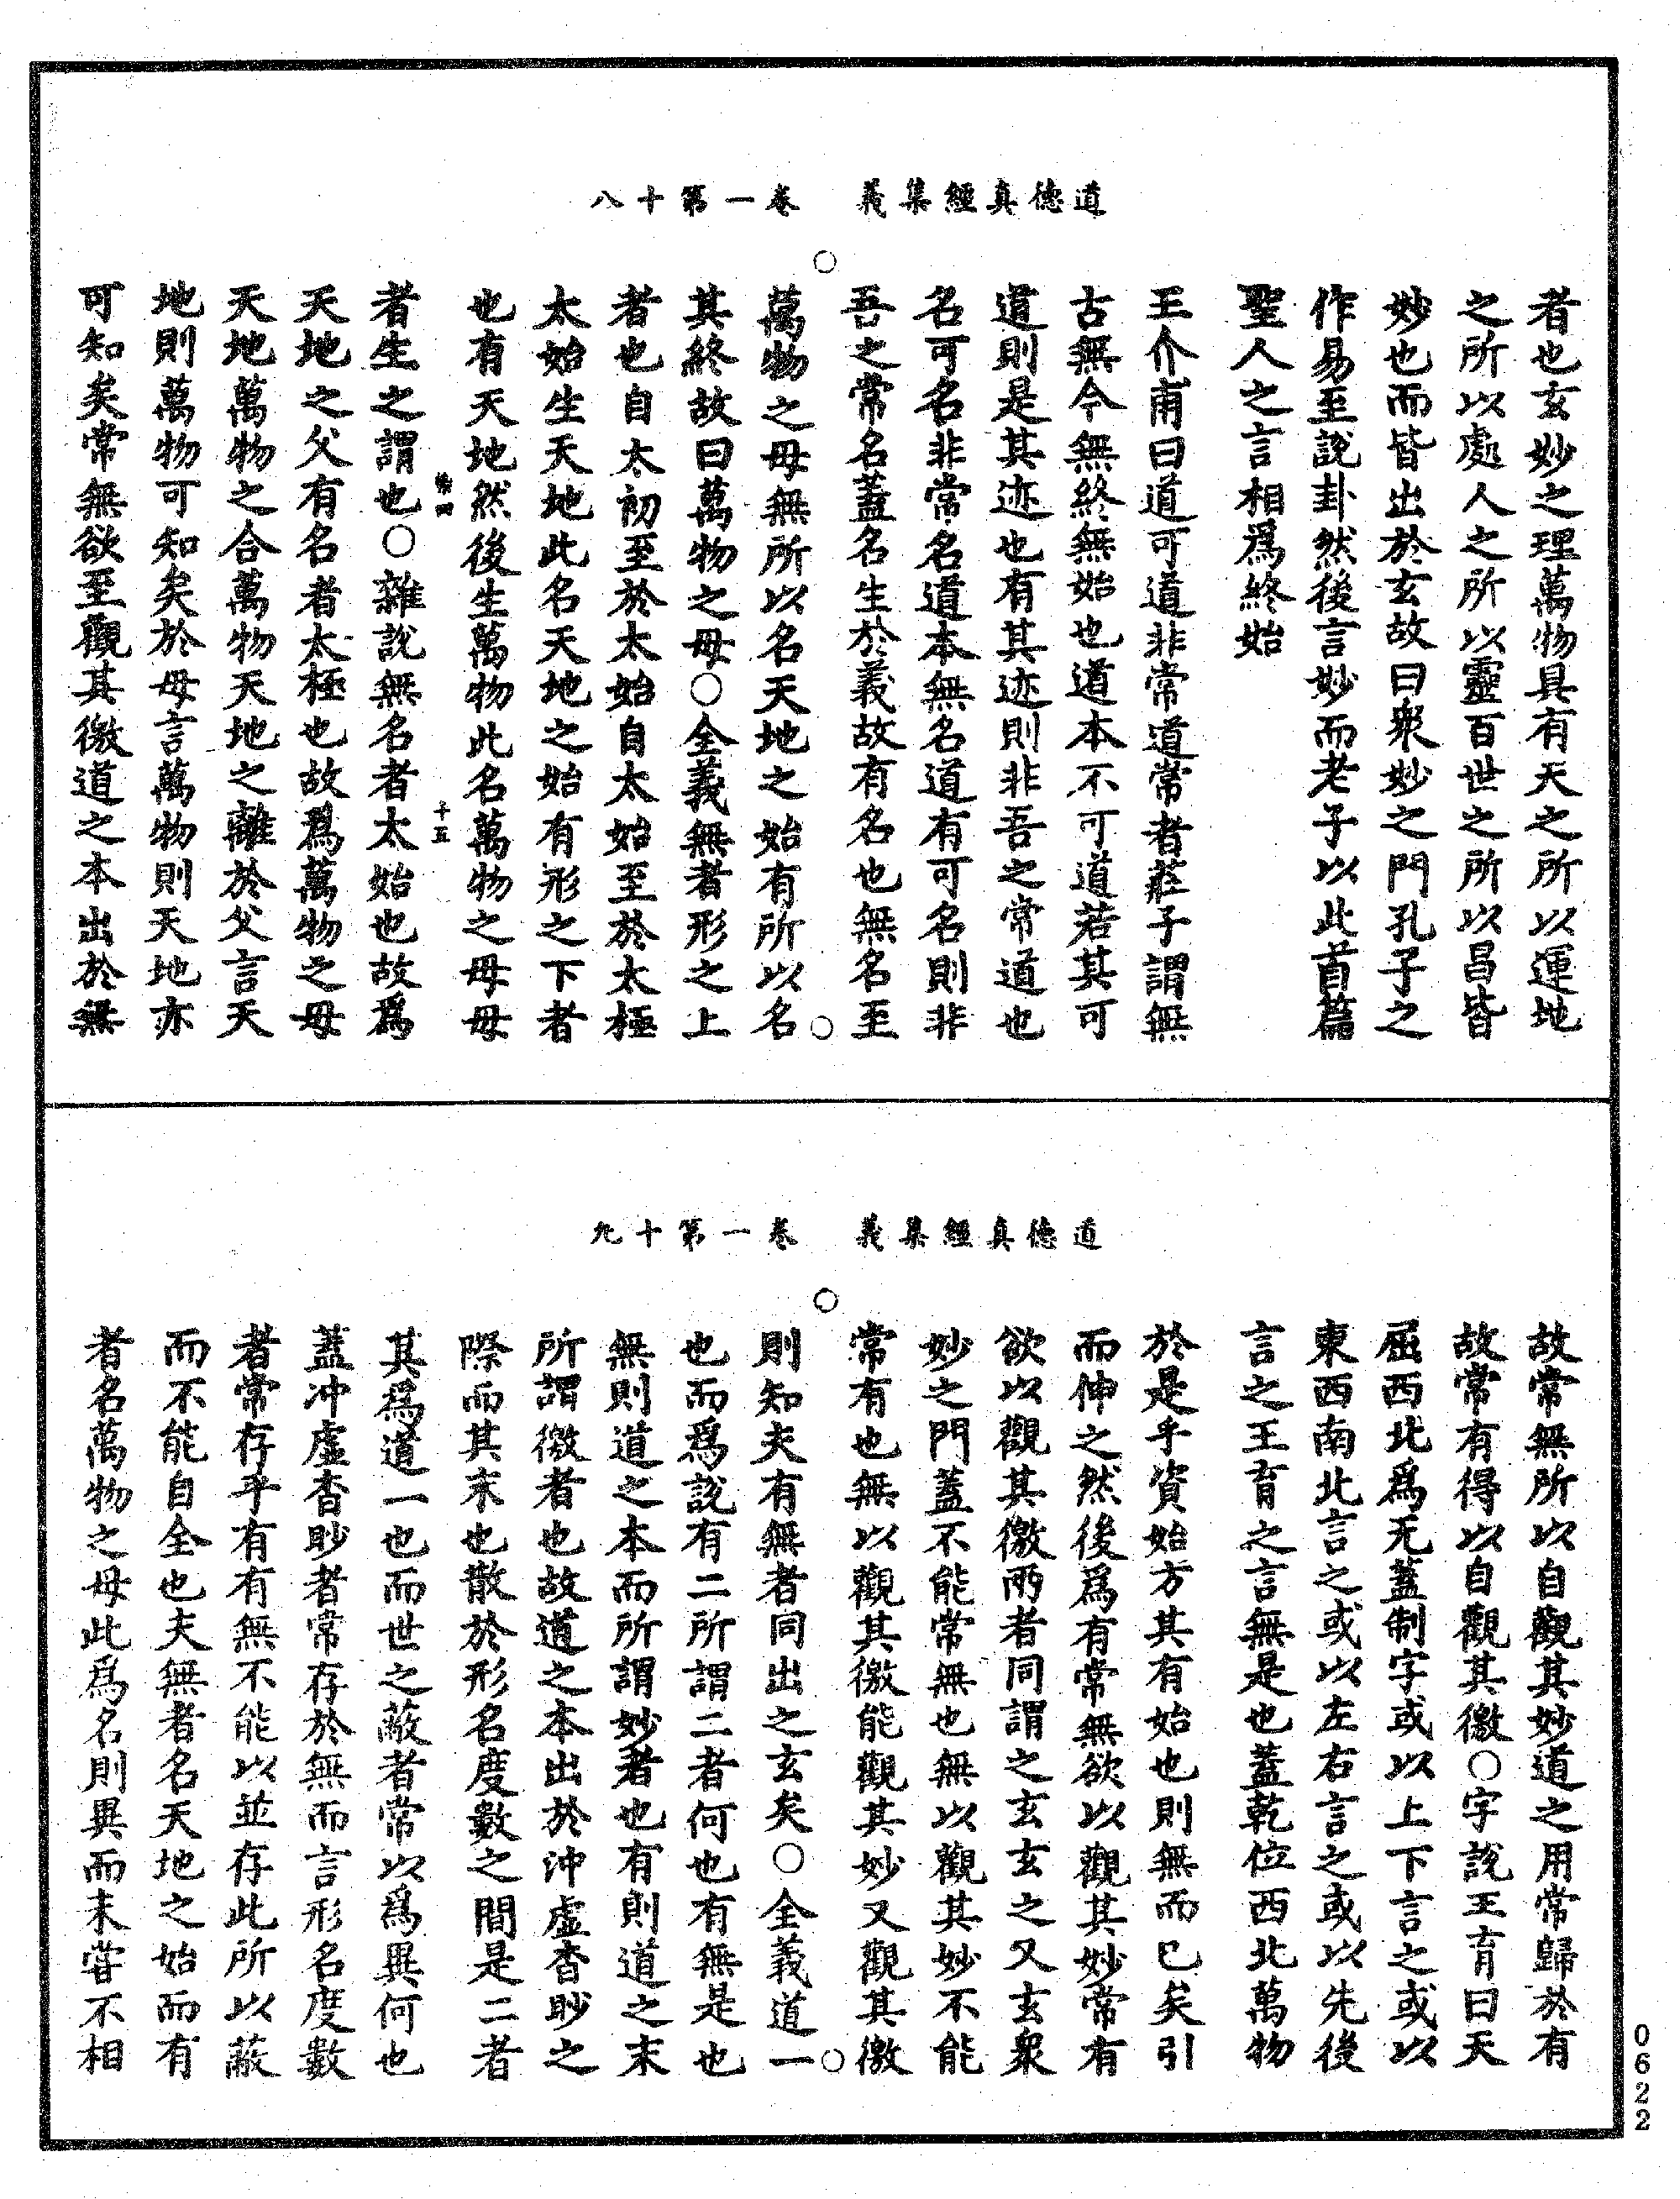 道德真經集義　卷一第十八
者也玄妙之理萬物具有天之所以運地
之所以處人之所以靈百世之所以昌皆
妙也而皆出於玄故曰衆妙之門孔子之
作易至說卦然後言妙而老子以此首篇
聖人之言相爲終始
王介甫曰道可道非常道常者莊子謂無
古無今無終無始也道本不可道若其可
道則是其迹也有其迹則非吾之常道也
名可名非常名道本無名道有可名則非
吾之常名蓋名生於義故有名也無名至
萬物之母無所以名天地之始有所以名
其終故曰萬物之母○全義無者形之上
者也自太初至於太始自太始至於太極
太始生天地此名天地之始有形之下者
也有天地然後生萬物此名萬物之母母
十五
者生之謂也○雜說無名者太始也故爲
天地之父有名者太極也故爲萬物之母
天地萬物之合萬物天地之離於父言天
地則萬物可知矣於母言萬物則天地亦
可知矣常無欲至觀其徼道之本出於無
道德真經集義　卷一第十九
故常無所以自觀其妙道之用常歸於有
故常有得以自觀其徼○字說王育曰天
屈西北爲无蓋制字或以上下言之或以
東西南北言之或以左右言之或以先後
言之王育之言無是也蓋乾位西北萬物
於是乎資始方其有始也則無而已矣引
而伸之然後爲有常無欲以觀其妙常有
欲以觀其徼兩者同謂之玄玄之又玄衆
妙之門蓋不能常無也無以觀其妙不能
常有也無以觀其徼能觀其妙又觀其徼
則知夫有無者同出之玄矣○全義道一
也而爲說有二所謂二者何也有無是也
無則道之本而所謂妙者也有則道之末
所謂徼者也故道之本出於沖虛杳眇之
際而其末也散於形名度數之間是二者
其爲道一也而世之蔽者常以爲異何也
蓋冲虛杳眇者常存於無而言形名度數
者常存乎有有無不能以並存此所以蔽
而不能自全也夫無者名天地之始而有
者名萬物之母此爲名則異而未嘗不相
0622